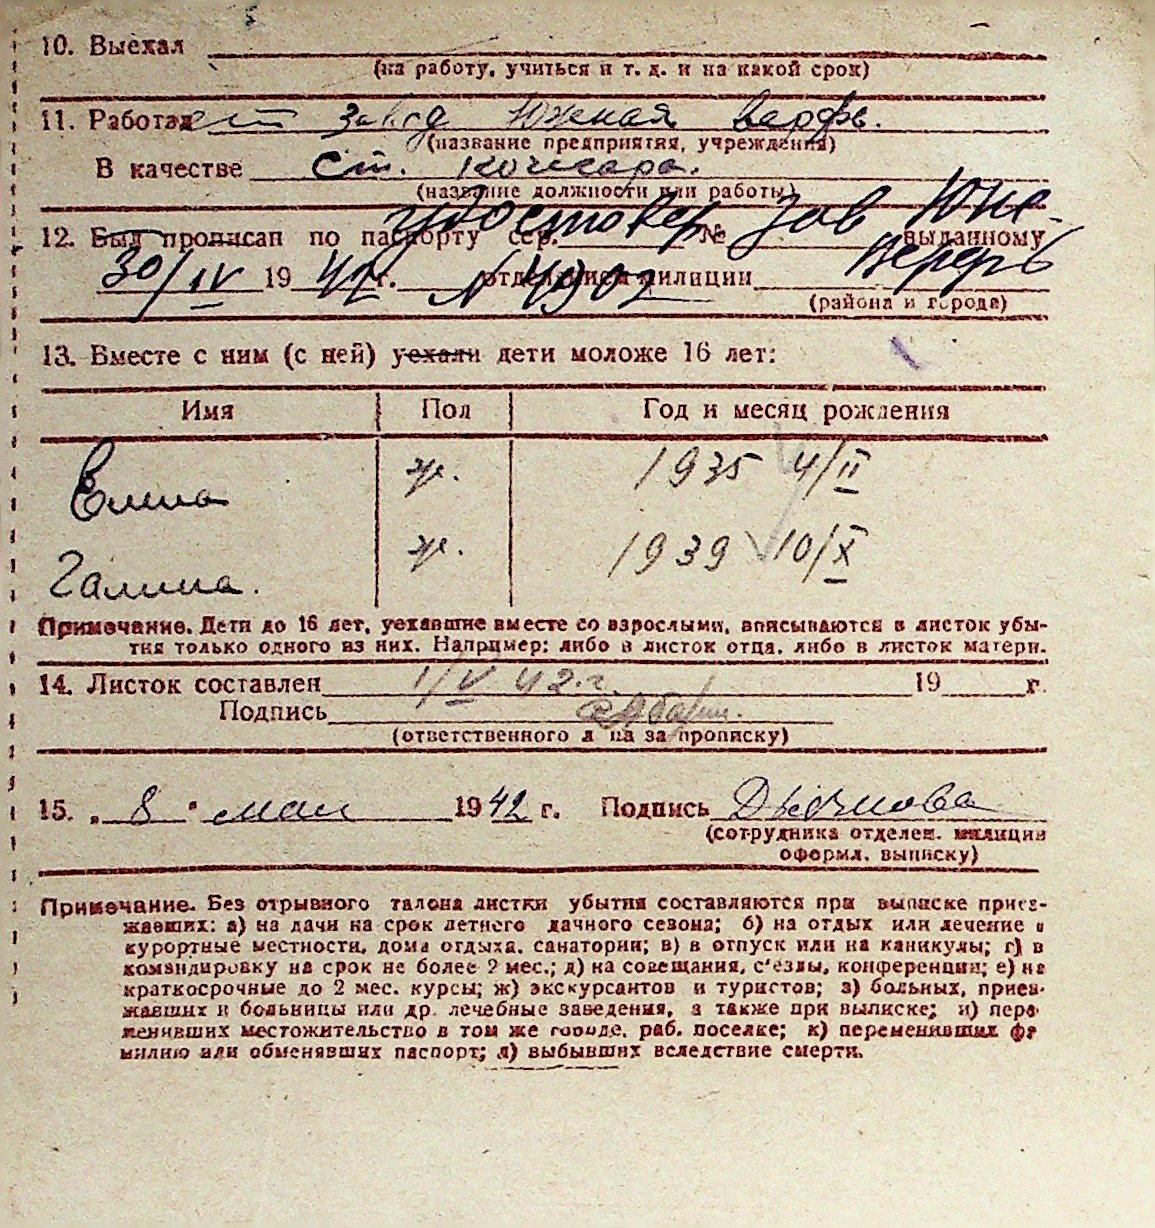 10. Выехал
(на работу, учиться и т. д. и на какой срок)
11. Работает завод Южная верфь.
(название предприятия, учреждения)
В качестве ст. кочегара.
(название должности или работы)
удостовер. зав Юж.
12. Был прописан по паспорту сер. № выданному
Верфь
30/IV 1942 г. отделением милиции N 4902
(района и города)
13. Вместе с ним (с ней) уехали дети моложе 16 лет:
Имя Пол Год и месяц рождения
ж. 1935 4/II
Галина. ж. 1939 10/X
Примечание. Дети до 16 лет, уехавшие вместе со взрослыми, вписываются в листок убы-
тия только одного из них. Например: либо в листок отца, либо в листок матери.
14. Листок составлен 1/V 42 г. 19 г.
Подпись
(ответственного л на за прописку)
15. „ 8 " мая 1942 г. Подпись
(сотрудника отделен. милиции
оформл. выписку)
Примечание. Без отрывного талона листки убытия составляются при выписке приез-
жавших: а) на дачи на срок летнего дачного сезона; б) на отдых или лечение в
курортные местности, дома отдыха, санатории; в) в отпуск или на каникулы; г) в
командировку на срок не более 2 мес.; д) на совещания, с'езды, конференции; е) на
краткосрочные до 2 мес. курсы; ж) экскурсантов и туристов; з) больных, приез-
жавших в больницы или др. лечебные заведения, а также при выписке; и) пере-
менивших местожительство в том же городе, раб. поселке; к) переменивших фа
милию или обменявших паспорт; л) выбывших вследствие смерти.